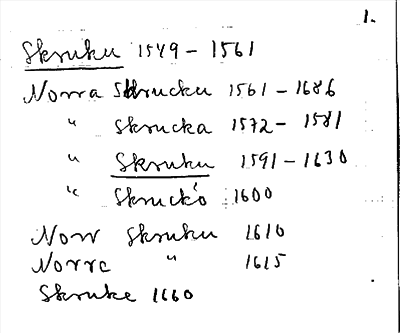 1.
Skruku 1549 - 1561
Norra Skrucku 1561 - 1686
" Skrucka 1572 - 1581
" Skruku 1591 - 1630
" Skruckó 1600
Norr Skruku 1610
Norrc " 1615
Skruke 1660